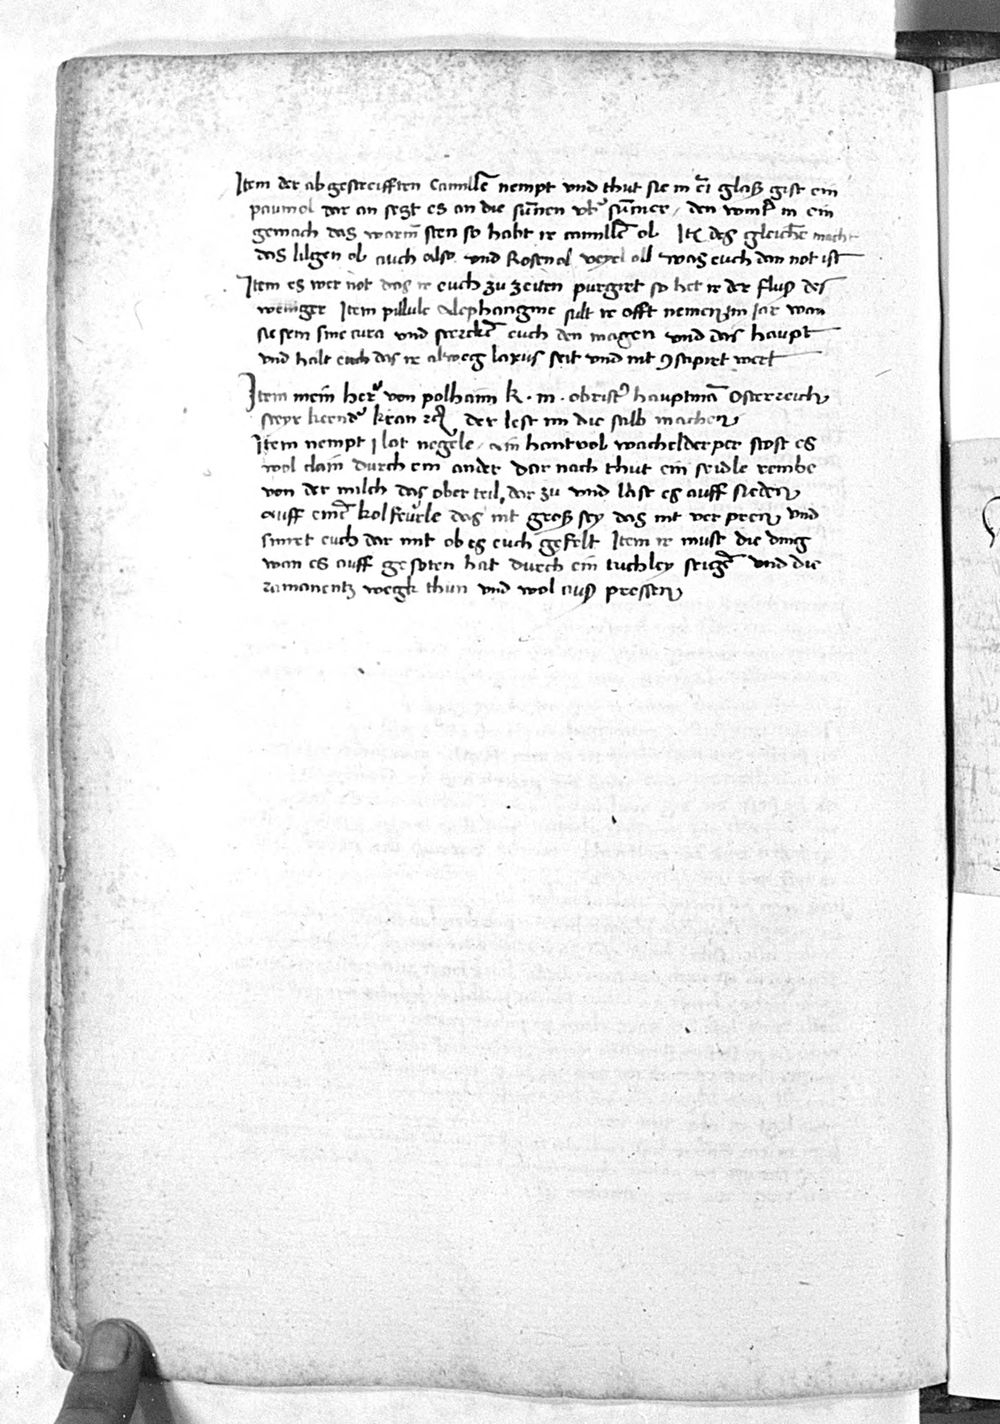 Item der abgestreifften Camille nempt und thut sie in ein glaß gist ein
paumol dar an sezt es an die sunnen uber sumer, den wintter in ein
gemach das warm sten so habt ir camillen ol Item des gleichen macht
das lilgen ol auch also und Rosenol veyel oll was euch dan not ist
Item es wer not das ir euch zu zeiten purgiret so het ir der fluß des
weniger Item pillule Alephangine sult ir offt nemen im jar wan
sie sein sine cura und stercken euch den magen und das haupt
und halt euch das ir alweg laxus seit und nit 9stipiret wert
Item mein her von polhaim k. m. obrister hauptman Osterreich
steyr kernd krain der lest im die salb machen
Item nempt j lot negele, ain hantvol wachelderper stost es
wol clain durch ein ander dar nach thut ein seidle rembe
von der milch das ober teil, dar zu und last es auff sieden
auff eine kolfeurle das nit groß sey das nit ver pren und
smiret euch dar mit ob es euch gefelt Item ir must die ding
wan es auff gesoten hat durch ein tuchley seigen und die
ramanentz wegk thun und wol auß pressen